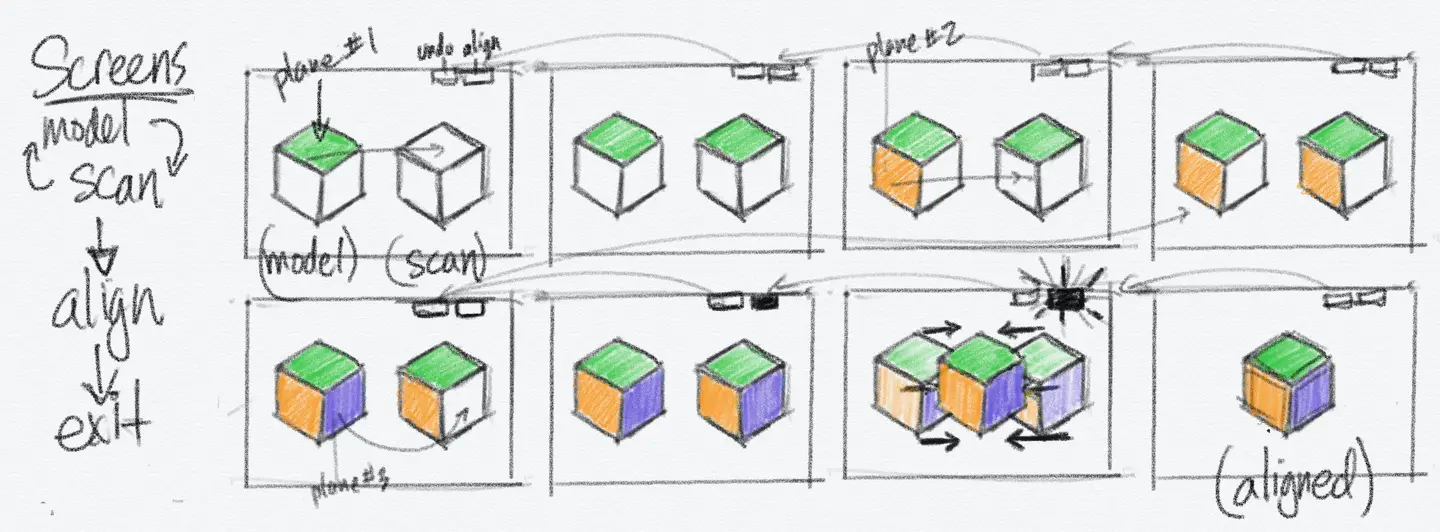 Screens
model
scan
align
exit
plane #1
undo align
plane #2
(model) (scan)
plane #3
(aligned)